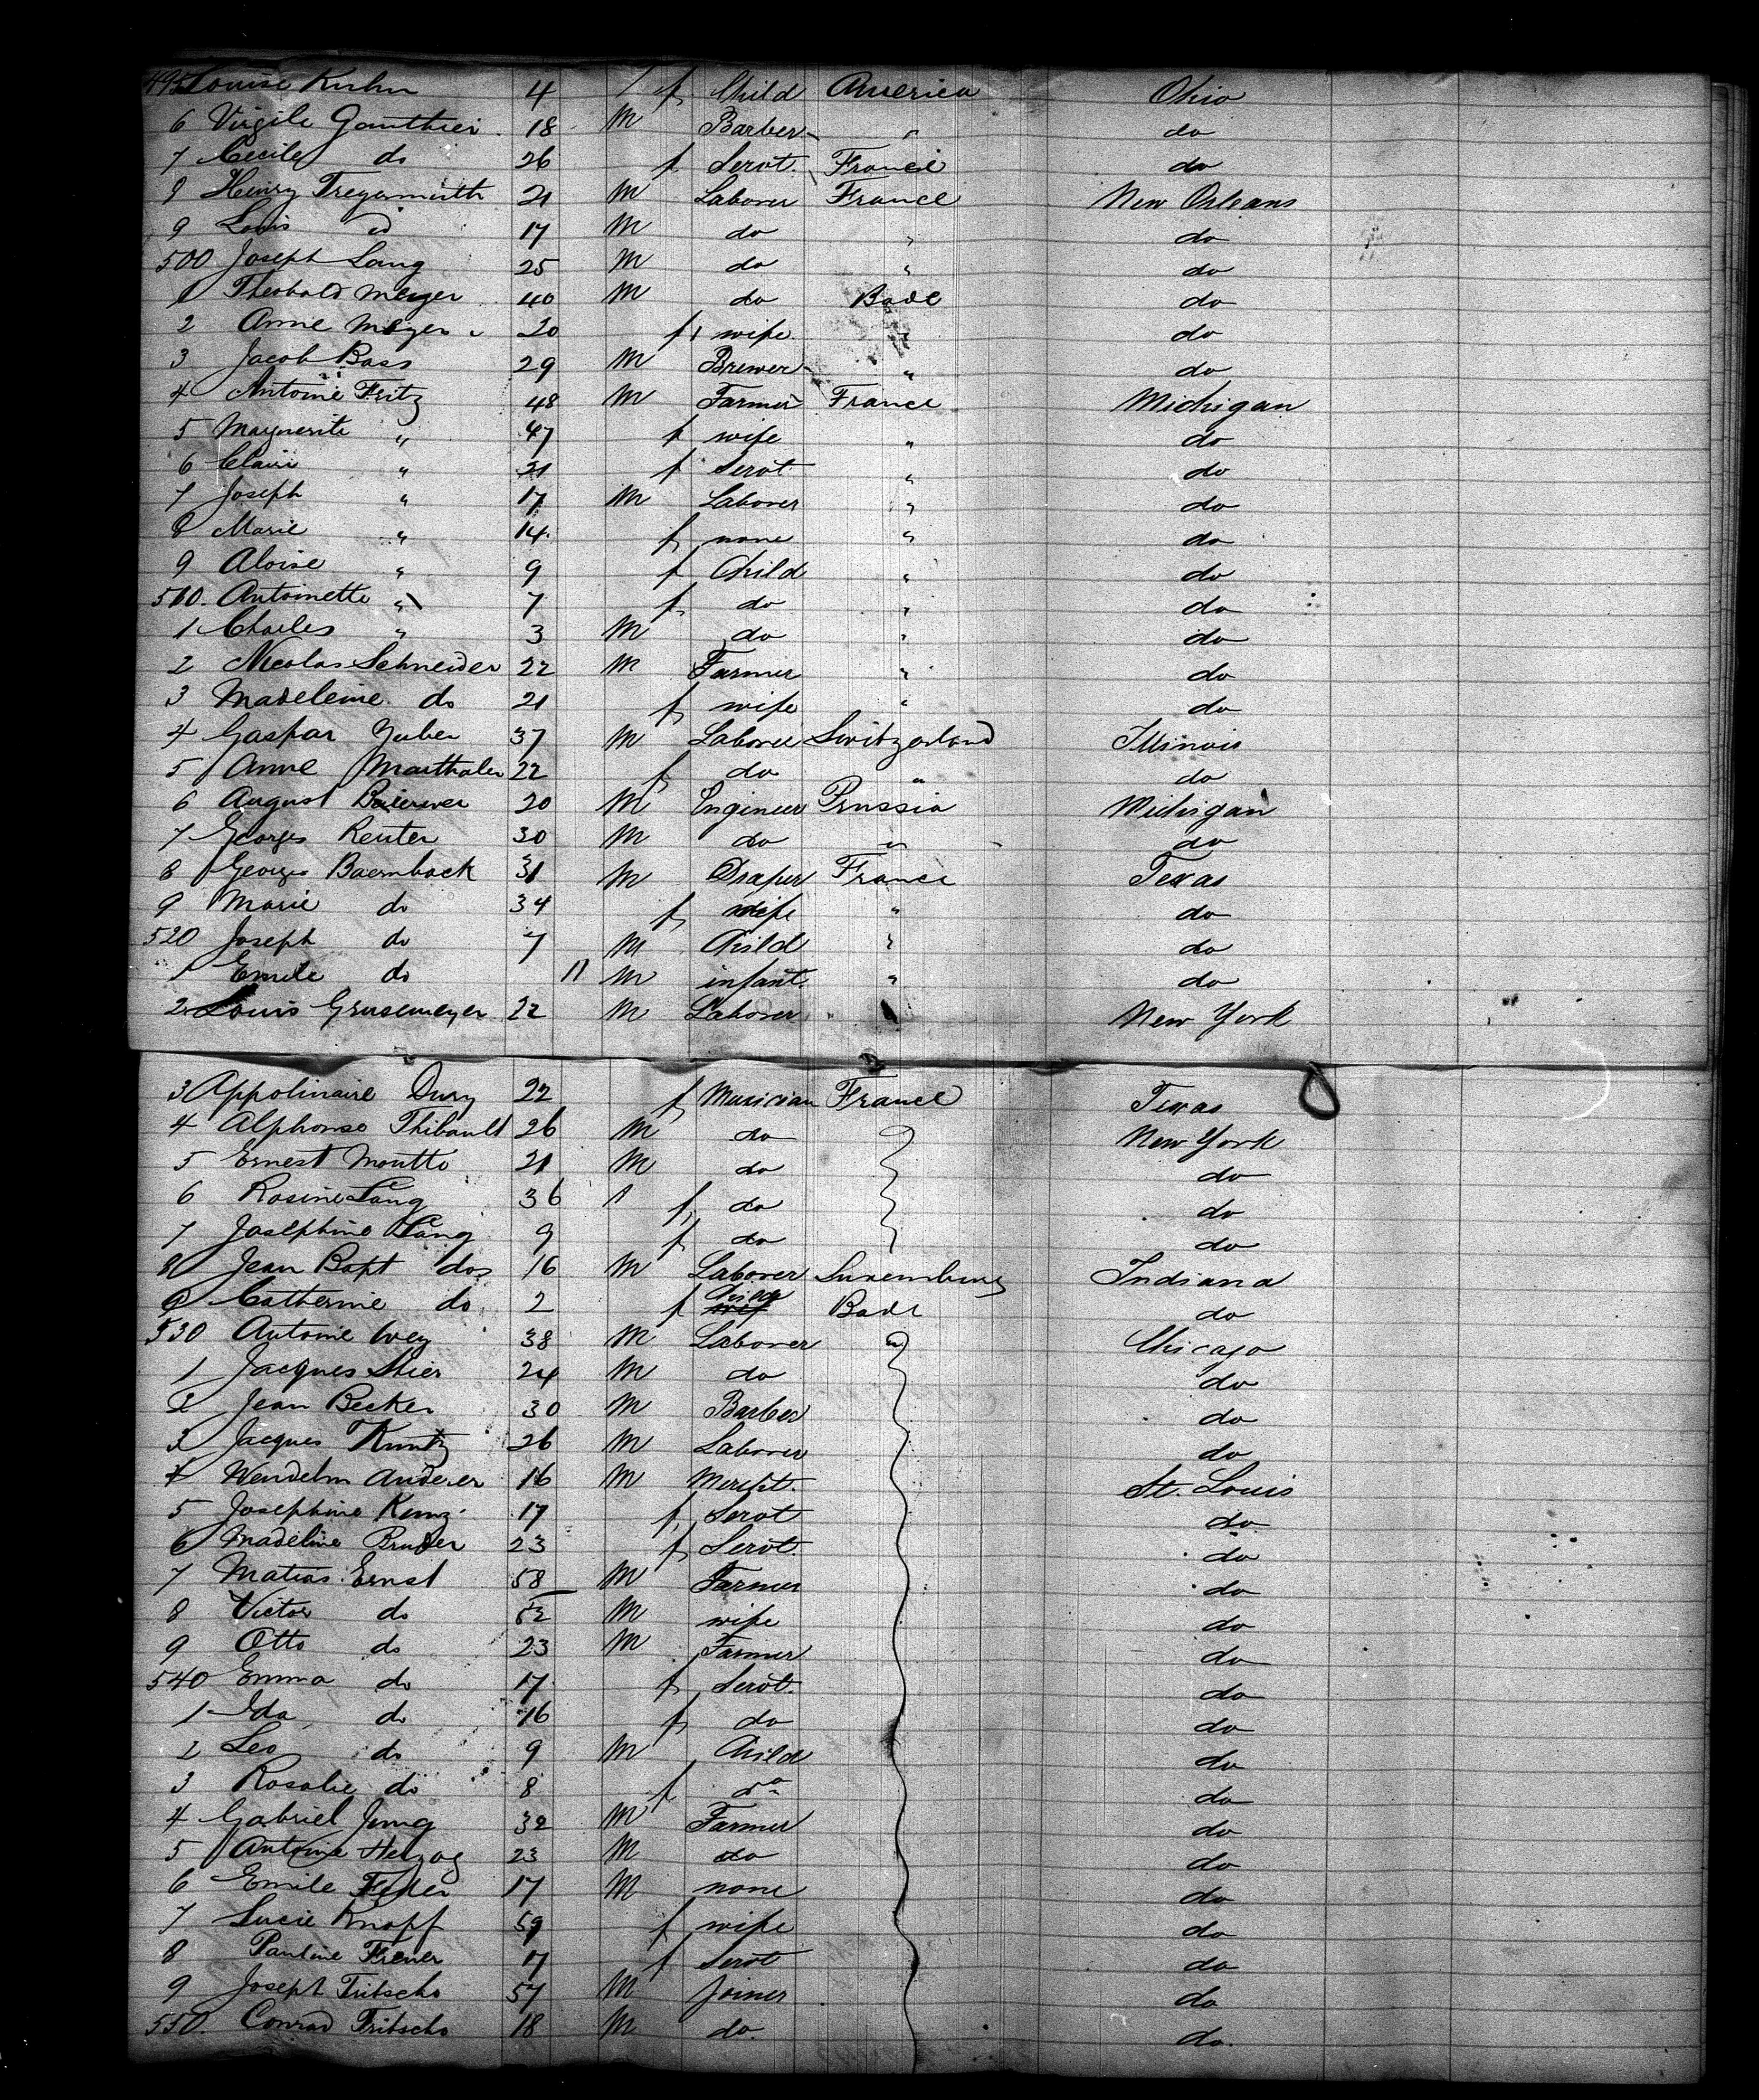 495 Louise Kuhn 4 f Child America Ohio
6 Virgile Gauthier 18 M Barber " do
7 Cecile do 26 f Servt. France do
8 Henry Tregenmuth 21 M Laborer France New Orleans
9 Louis do 17 M do " do
500 Joseph Lang 25 M do " do
1 Theobald Meyer 40 M do Bade do
2 Anne Meyer 20 f wife " do
3 Jacob Bass 29 M Brewer " do
4 Antoine Fritz 48 M Farmer France Michigan
5 Marguerite " 47 f wife " do
6 Claire " 21 f Servt " do
7 Joseph " 17 M Laborer " do
8 Marie " 14 f none " do
9 Aloise " 9 f Child " do
510. Antoinette " 7 f do " do
1 Charles " 3 M do " do
2 Nicolas Schneider 22 M Farmer " do
3 Madeleine do 21 f wife " do
4 Gaspar Zuber 37 M Laborer Switzerland Illinois
5 Anne Marthaler 22 f do " do
6 August 20 M Engineer Prussia Michigan
7 Georges Reuter 30 M do " do
8 Georges Baernback 31 M Draper France Texas
9 Marie do 34 f wife " do
520 Joseph do 7 M Child " do
1 Emile do 11 M infant. " do
2 Louis Grusemeyer 22 M Laborer " New York
3 Appolinaire Dury 22 f Musician France Texas
4 Alphonse Thibault 26 M do New York
5 Ernest Moutto 21 M do do
6 Rosine Lang 36 f do do
7 Josephine Lang 9 f do do
8 Jean Bapt dos 16 M Laborer Luxemburg Indiana
9 Catherine do 2 f Child Bade do
530 Antoine Wey 38 M Laborer " Chicago
1 Jacques Stier 24 M do do
2 Jean Becker 30 M Barber do
3 Jacques Kuntz 26 M Laborer do
4 Wendelin Anderer 16 M Mercht. St. Louis
5 Josephine Kunz 17 f Servt do
6 Madeline Bruder 23 f Servt. do
7 Matias Ernst 58 M Farmer do
8 Victor do 52 M wife do
9 Otto do 23 M Farmer do
540 Emma do 17 f Servt. do
1 Ida do 16 f do do
2 Leo do 9 M Child do
3 Rosalie do 8 f do do
4 Gabriel Jung 32 M Farmer do
5 Antoine Herzog 23 M do do
6 Emile 17 M none do
7 Lucie Knopf 59 f wife do
8 Pauline 17 f Servt do
9 Joseph Tritscho 57 M Joiner do
550. Conrad Tritscho 18 M do. do.